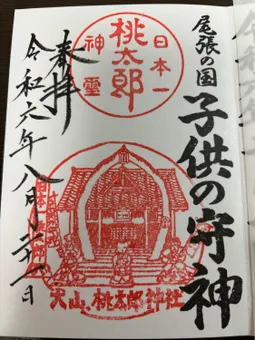 尾張の国
子供の守神
日本一
桃太郎
神霊
奉拝
令和六年八月二十一日
犬山、桃太郎神社